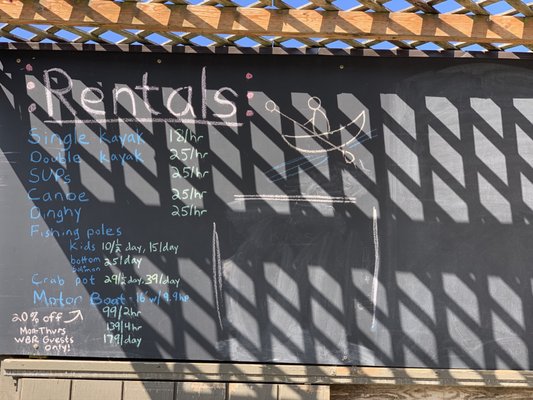 Rentals:
Single kayak 18/hr
Double kayak 25/hr
SUPs 25/hr
Canoe 25/hr
Dinghy 25/hr
Fishing poles
Kids 10/½ day, 15/day
bottom 25/day
salmon
Crab pot 29/½day, 39/day
Motor Boat - 16' w/ 9.9hp
99/2hr
20% off 139/4hr
Mon-Thurs 179/day
WBR Guests
Only!